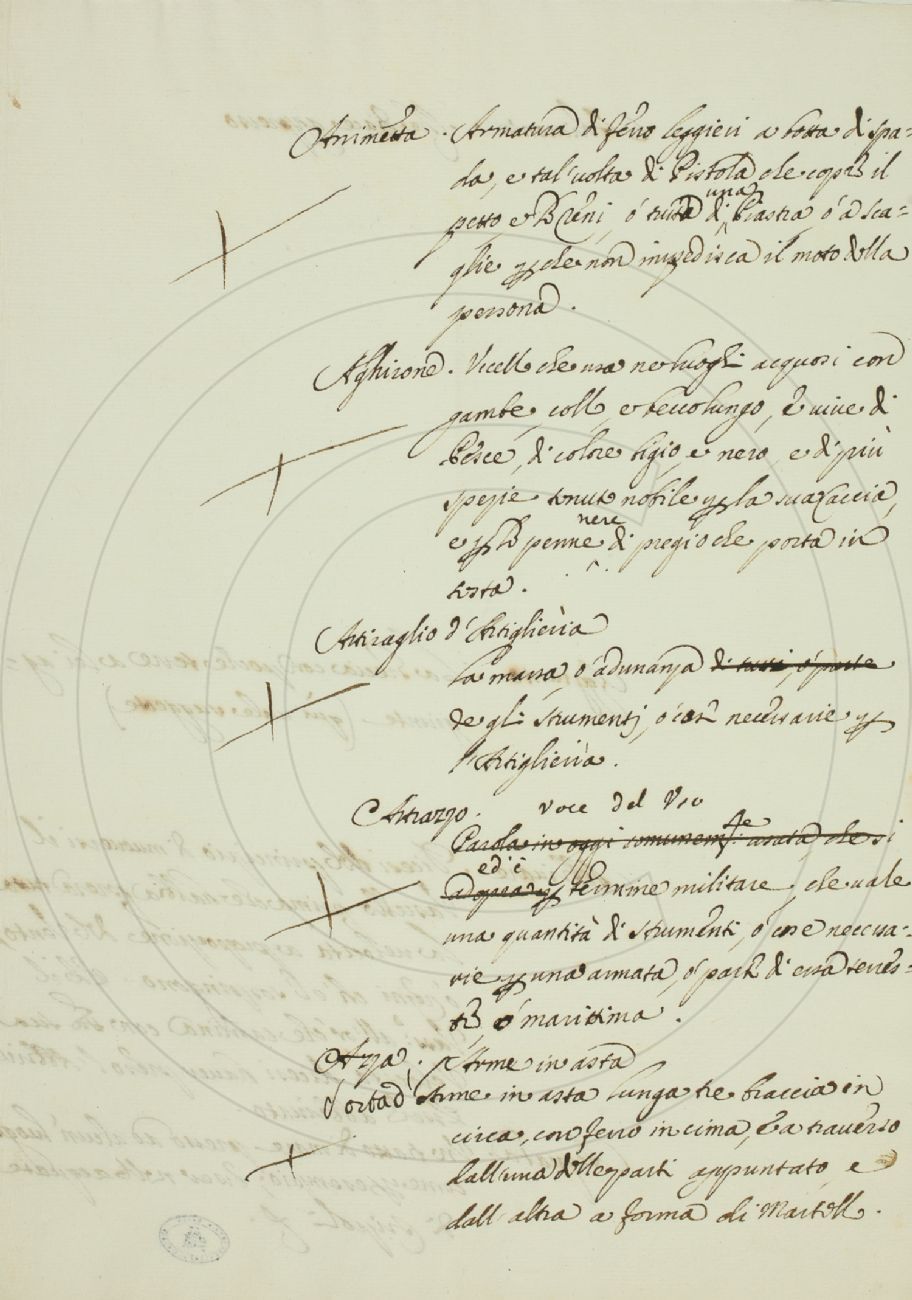 Animetta. Armatura di ferro leggieri a botta di spa-
da, e tal'volta di Pistola che copre il
petto, e Reni, ó tutta di una Piastra ó a sca-
glie che non impedisca il moto della
persona.
Aghirone. Uccello che usa ne luoghi acquosi con
gambe, collo, e becco lungo, e vive di
Pesce, di colore bigio, e nero, e di più
spezie tenuto nobile per la sua Caccia,
e per le penne nere di pregio che porta in
testa.
Attiraglio d'Artiglieria
La massa, ó adunanza di tutti, ó parte
de gli strumenti, ó cose necessarie per
l'Artiglieria.
Attrazzo. Voce del Uso
Parola in oggi comunemte usata, che si
ed'è
adopera per termine militare, che vale
una quantità di strumenti, ó cose necessa-
rie per una armata, ó parte di essa terres-
tre, ó marittima.
Azza. Arme in asta
Sorta d'Arme in asta lunga tre braccia in
circa, con ferro in cima, e a traverso
dall'una delle parti appuntato, e
dall'altra a forma di Martello.